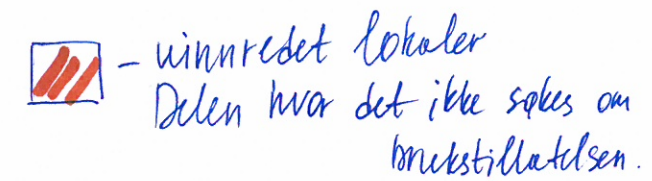 – uinnredet lokaler
Delen hvor det ikke søkes om
brukstillatelsen.